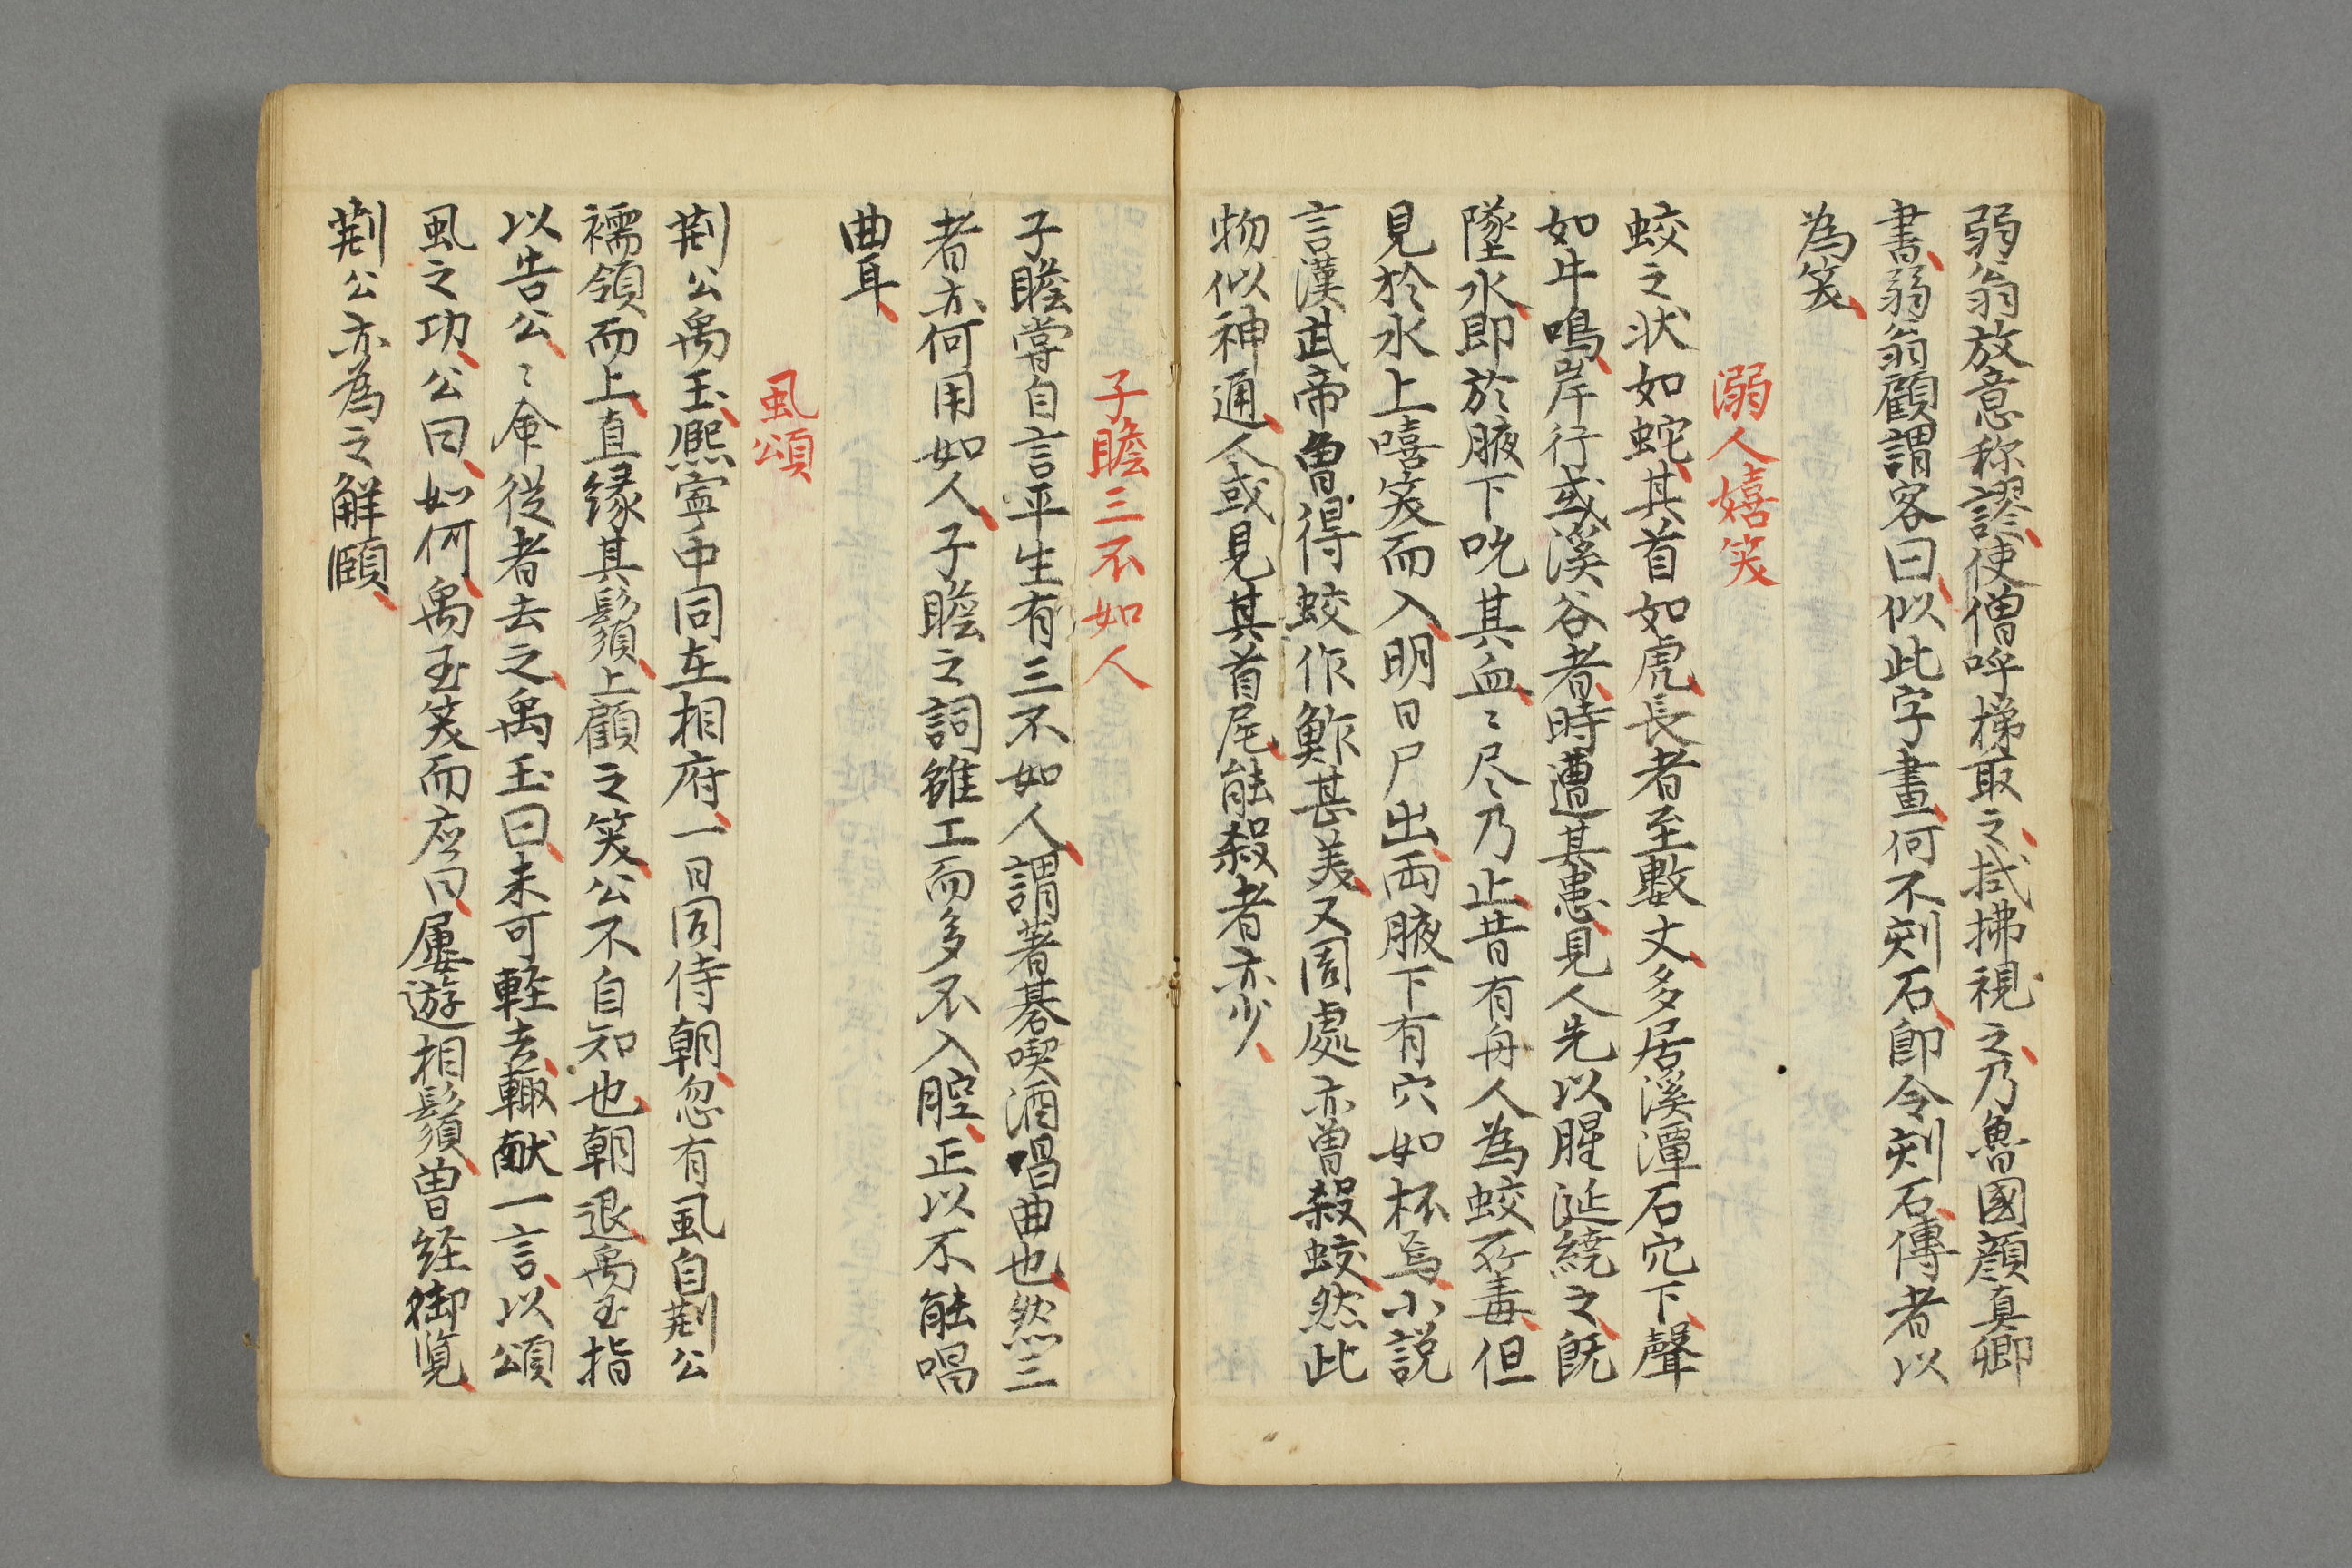 弱翁放意称謬使僧呼梯取之拭拂視之乃魯國顔真卿
書弱翁顧謂客曰似此字畫何不刻石即令刻石傳者以
為笑
溺人嬉笑
蛟之状如蛇其首如虎長者至數丈多居溪潭石穴下聲
如牛鳴岸行或溪谷者時遭其患見人先以腥涎繞之既
墜水即於腋下吮其血〻尽乃止昔有舟人為蛟所毒但
見於水上嘻笑而入明日尸出両腋下有穴如杯焉小説
言漢武帝曽得蛟作鮓甚美又周處亦曽殺蛟然此
物似神通人或見其首尾能殺者亦少
子瞻三不如人
子瞻甞自言平生有三不如人謂著碁喫酒唱曲也然三
者亦何用如人子瞻之詞雖工而多不入腔正以不能唱
曲耳
虱頌
荆公禹玉熈寧中同在相府一日同侍朝忽有虱自荆公
襦領而上直縁其鬚上顧之笑公不自知也朝退禹玉指
以告公〻命従者去之禹玉曰未可軽去輙献一言以頌
虱之功公曰如何禹玉笑而応曰屢遊相鬚曽経御覧
荆公亦為之解頤